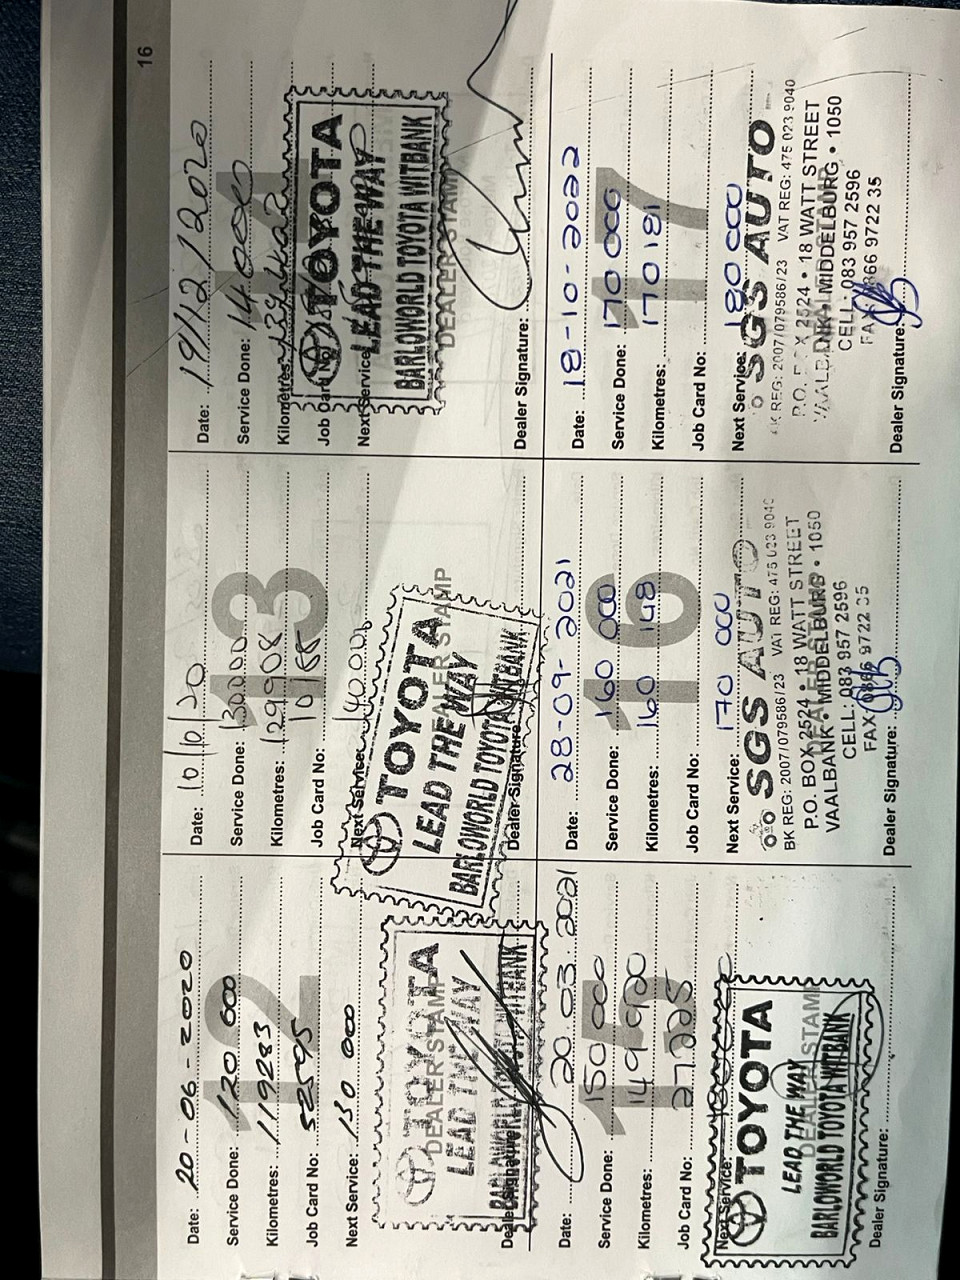 16
12
Date: 20-06-2020
Service Done: 120 000
Kilometres: 119283
Job Card No: 52595
Next Service: 130 000
TOYOTA
DEALER STAMP
LEAD THE WAY
BARLOWORLD TOYOTA WITBANK
Dealer Signature:
13
Date: 10/10/20
Service Done: 130000
Kilometres: 129908
Job Card No:
Next Service: 140 000
TOYOTA
LEAD THE WAY
DEALER STAMP
BARLOWORLD TOYOTA WITBANK
Dealer Signature:
14
Date: 19/12/2020
Service Done: 14 0000
Kilometres:
Job Card No:
TOYOTA
Next Service:
LEAD THE WAY
BARLOWORLD TOYOTA WITBANK
DEALER STAMP
Dealer Signature:
15
Date: 20.03.2021
Service Done: 150 000
Kilometres: 149920
Job Card No: 27225
Next Service:
TOYOTA
LEAD THE WAY
DEALER STAMP
BARLOWORLD TOYOTA WITBANK
Dealer Signature:
16
Date: 28-09-2021
Service Done: 160 000
Kilometres: 160 148
Job Card No:
Next Service: 170 000
SGS AUTO
BK REG: 2007/079586/23 VAT REG: 475 023 9040
P.O. BOX 2524 • 18 WATT STREET
VAALBANK • MIDDELBURG • 1050
CELL: 083 957 2596
FAX: 0866 9722 35
Dealer Signature:
17
Date: 18-10-2022
Service Done: 170 000
Kilometres: 170 181
Job Card No:
Next Service: 180 000
SGS AUTO
BK REG: 2007/079586/23 VAT REG: 475 023 9040
P.O. BOX 2524 • 18 WATT STREET
VAALBANK • MIDDELBURG • 1050
CELL: 083 957 2596
FAX 0866 9722 35
Dealer Signature: